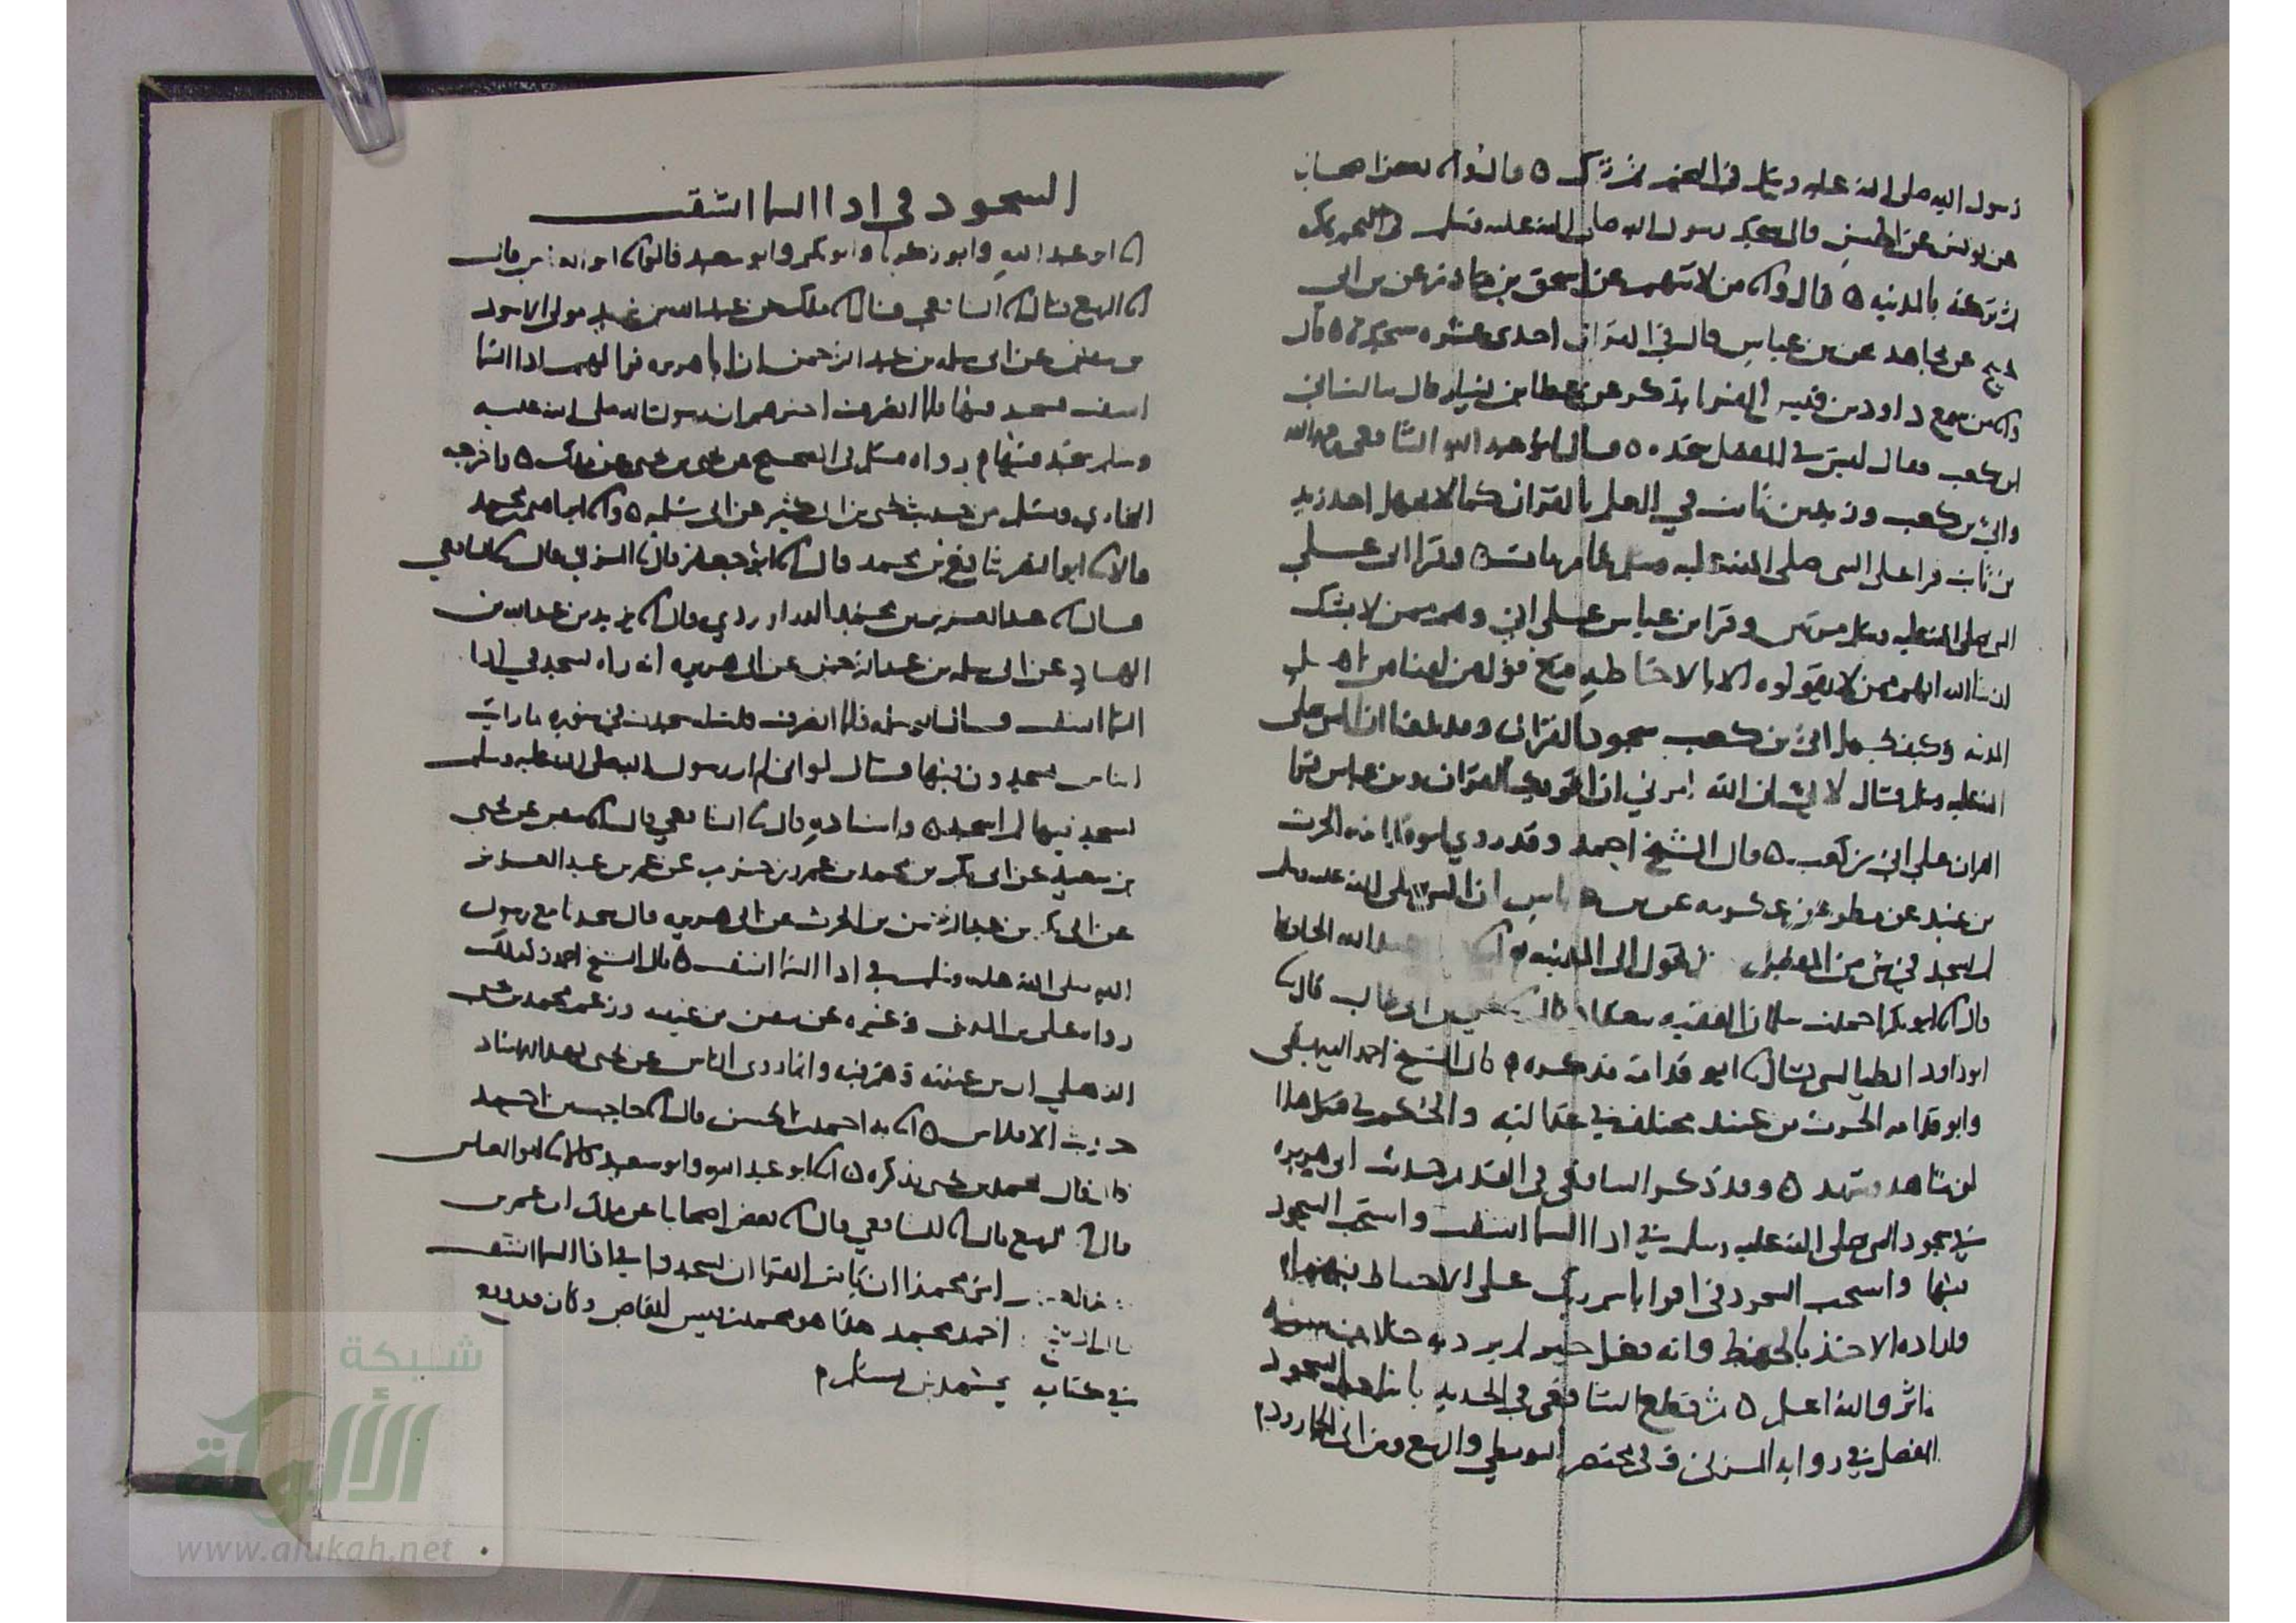 رسول الله صلى الله عليه وسلم في النجم ثم ترك ه قال وانا بعض اصحابنا
عن يونس عن الحسن قال سجد رسول الله صلى الله عليه وسلم في النجم بمكه
ثم تركه بالمدينه ه قال وانا من لا نتهم عن اسحق بن عن بن ابي
نجيح عن مجاهد عن بن عباس قال في القران احدى عشره سجده ه قال
وانا من سمع داود بن قيس الفرا يذكر عن عطا بن يسار قال سالت ابي
بن كعب فقال ليس في المفصل سجده ه قال ابو عبد الله الشافعي رحمه الله
وابي بن كعب وزيد بن ثابت في العلم بالقران كما لا يجهل احد زيد
بن ثابت قرا على النبي صلى الله عليه وسلم عام مات ه وقرا ابي على
النبي صلى الله عليه وسلم مرتين وقرا بن عباس على ابي وهم ممن لا يشك
ان شا الله انهم ممن لا يقولوه الا بالاحاطه مع قول من لقينا من اهل
المدينه وكيف يجهل ابي بن كعب سجود القران وقد بلغنا ان النبي صلى
الله عليه وسلم قال لابي ان الله امرني ان اقريك القران وبن عباس قرا
القران على ابي بن كعب ه قال الشيخ احمد وقد روي ابو قدامه الحرث
بن عبيد عن مطر عن عكرمه عن بن عباس ان النبي صلى الله عليه وسلم
لم يسجد في شي من المفصل تحول الى المدينه انا عبد الله الحافظ
قال انا ابو بكر احمد بن سلمان الفقيه ببغداد بن ابي طالب قال نا
ابو داود الطيالسي قال نا ابو قدامه فذكره ه قال الشيخ احمد البيهقي
وابو قدامه الحرث بن عبيد مختلف في عدالته والحكم في مثل هذا
لمن شاهد وشهد ه وقد ذكر الشافعي في القديم حديث ابي هريره
في سجود النبي صلى الله عليه وسلم في اذا السما انشقت واستحب السجود
فيها واستحب السجود في اقرا باسم ربك على الاحتياط
واراده الاخذ بالحفظ وانه فعل خير لم يرد به خلاف
ناثر والله اعلم ه ثم قطع الشافعي في الجديد باثبات السجود
المفصل في روايه المزني وفي مختصر البويطي والربيع وبن ابي الجارود
السجود في اذا السما انشقت
انا ابو عبد الله وابو زكريا وابو بكر وابو سعيد قالوا نا ابو العباس قال
انا الربيع قال انا الشافعي قال انا ملك عن عبد الله بن يزيد مولى الاسود
بن سفين عن ابي سلمه بن عبد الرحمن ان ابا هريره قرا لهم اذا السما
انشقت فسجد فيها فلما انصرف اخبرهم ان رسول الله صلى الله عليه
وسلم سجد فيها رواه مسلم في الصحيح عن يحيى بن يحيى عن ملك ه واخرجه
البخاري ومسلم من حديث يحيى بن ابي كثير عن ابي سلمه ه وانا محمد
قال انا ابو النضر شافع بن محمد قال انا ابو جعفر قال نا المزني قال نا الشافعي
قال انا عبد العزيز بن محمد الدراوردي قال انا يزيد بن عبد الله بن
الهاد عن ابي سلمه بن عبد الرحمن عن ابي هريره انه راه سجد في اذا
السما انشقت قال ابو سلمه فلما انصرف قلت سجدت في سوره ما رايت
الناس يسجدون فيها فقال لو اني لم ار رسول الله صلى الله عليه وسلم
يسجد فيها لم اسجد ه وباسناده قال نا الشافعي قال انا سفين عن يحيى
بن سعيد عن ابي بكر بن محمد بن عمرو بن حزم عن عمر بن عبد العزيز
عن ابي بكر بن عبد الرحمن بن الحرث عن ابي هريره قال سجدنا مع رسول
الله صلى الله عليه وسلم في اذا السما انشقت ه قال الشيخ احمد كذلك
رواه علي بن المديني وغيره عن سفين بن عيينه وزعم محمد بن يحيى
الذهلي ان بن عيينه وهم فيه وانما روى الناس عن يحيى بهذا الاسناد
حديث الافلاس ه انا به احمد بن الحسن قال انا حاجب بن احمد
قال قال محمد بن يحيى فذكره ه انا ابو عبد الله وابو سعيد قالا نا ابو العباس
قال نا الربيع قال انا الشافعي قال انا بعض اصحابنا عن ملك ان عمر بن
امر محمدا ان يامر القرا ان يسجدوا في اذا السما انشقت
قال الشيخ احمد محمد هذا هو محمد بن قيس القاص وكان
في كتابه محمد بن مسلم
شبكة
الألوكة
www.alukah.net